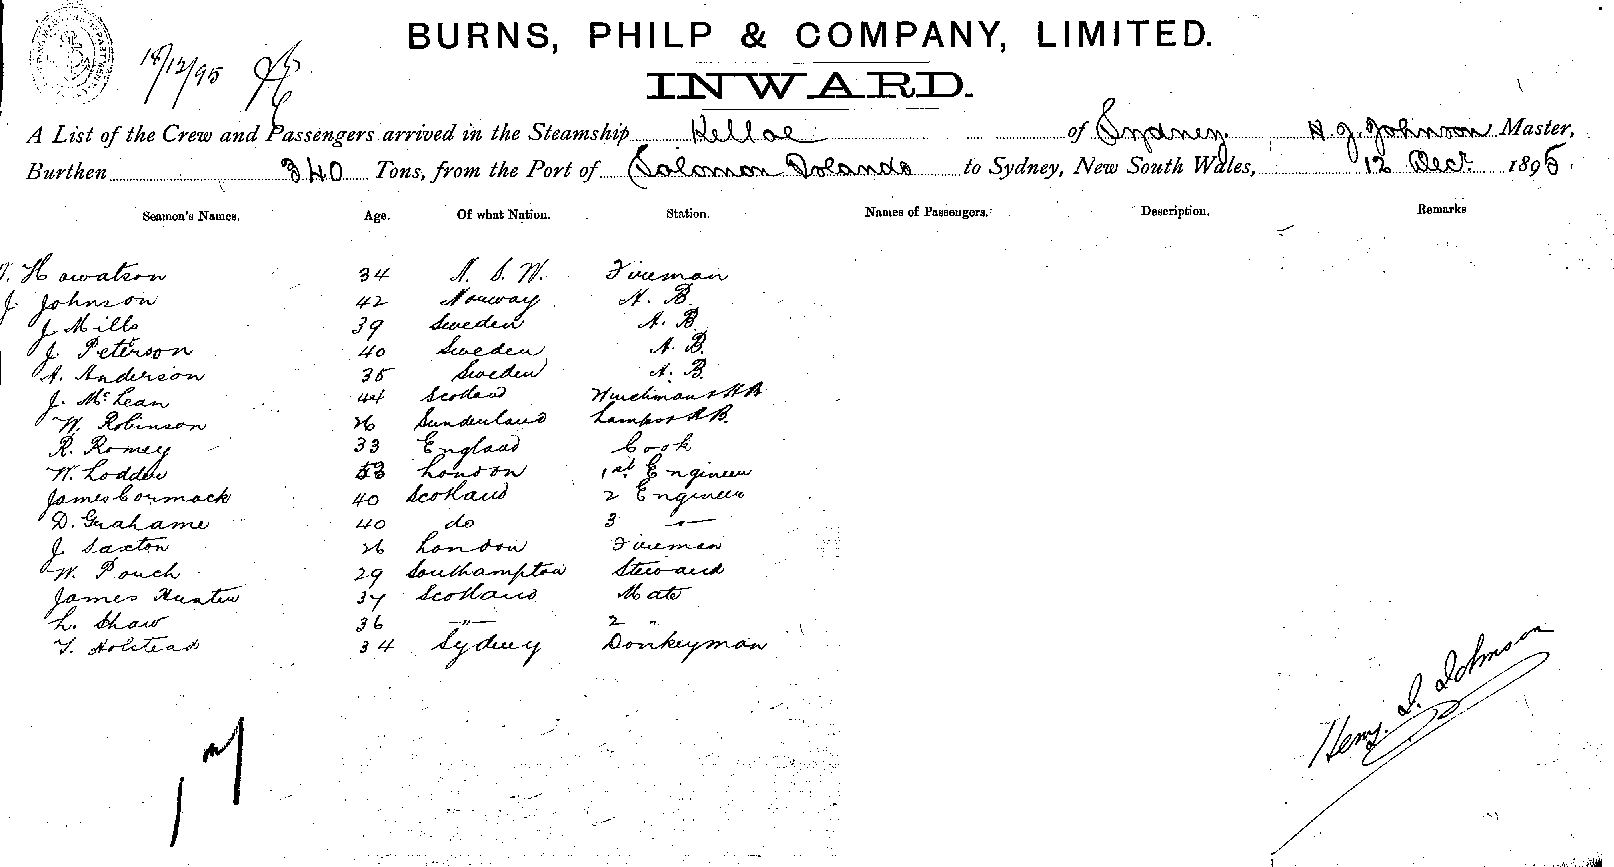 BURNS, PHILP & COMPANY, LIMITED.
18/12/95
INWARD.
A List of the Crew and Passengers arrived in the Steamship Kelloe of Sydney. H. J. Johnson Master,
Burthen 340 Tons, from the Port of Solomon Islands to Sydney, New South Wales, 12 Decr 1895.
Seamen's Names. Age. Of what Nation. Station. Names of Passengers. Description. Remarks
Howatson 34 N. S. W. Fireman
J Johnson 42 Norway A. B.
J Mills 39 Sweden A. B.
J. Peterson 40 Sweden A. B.
A. Anderson 35 Sweden A. B.
J. McLean 44 Scotland Winchman & A B
W. Robinson 26 Sunderland Lamps & A B.
R. Romey 33 England Cook
W. Lodder 53 London 1st Engineer
James Cormack 40 Scotland 2 Engineer
D. Grahame 40 do 3 —"—
J. Saxton 26 London Fireman
W. Pouch 29 Southampton Steward
James Hunter 37 Scotland Mate
L. Shaw 36 —"— 2 "
T. Holstead 34 Sydney Donkeyman
Henry J. Johnson